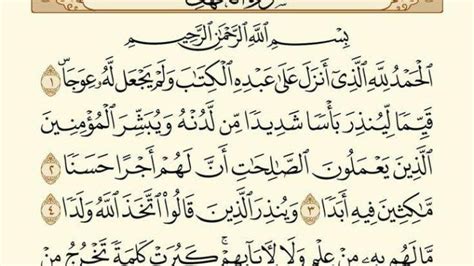 بِسْمِ اللَّهِ الرَّحْمَٰنِ الرَّحِيمِ
الْحَمْدُ لِلَّهِ الَّذِي أَنزَلَ عَلَىٰ عَبْدِهِ الْكِتَابَ وَلَمْ يَجْعَل لَّهُ عِوَجًا ۜ ١
قَيِّمًا لِّيُنذِرَ بَأْسًا شَدِيدًا مِّن لَّدُنْهُ وَيُبَشِّرَ الْمُؤْمِنِينَ
الَّذِينَ يَعْمَلُونَ الصَّالِحَاتِ أَنَّ لَهُمْ أَجْرًا حَسَنًا ٢
مَّاكِثِينَ فِيهِ أَبَدًا ٣ وَيُنذِرَ الَّذِينَ قَالُوا اتَّخَذَ اللَّهُ وَلَدًا ٤
مَّا لَهُم بِهِ مِنْ عِلْمٍ وَلَا لِآبَائِهِمْ ۚ كَبُرَتْ كَلِمَةً تَخْرُجُ مِنْ